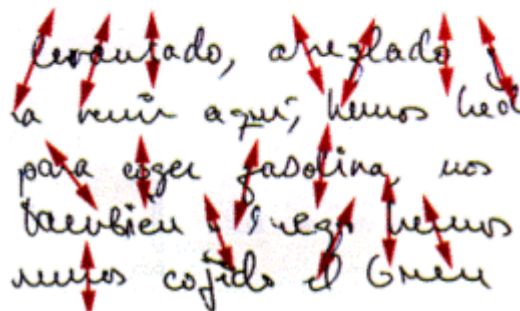 levantado, arreglado y
ra venir aquí, hemos hed
para coger gasolina, nos
también, hemos
hemos cojido el